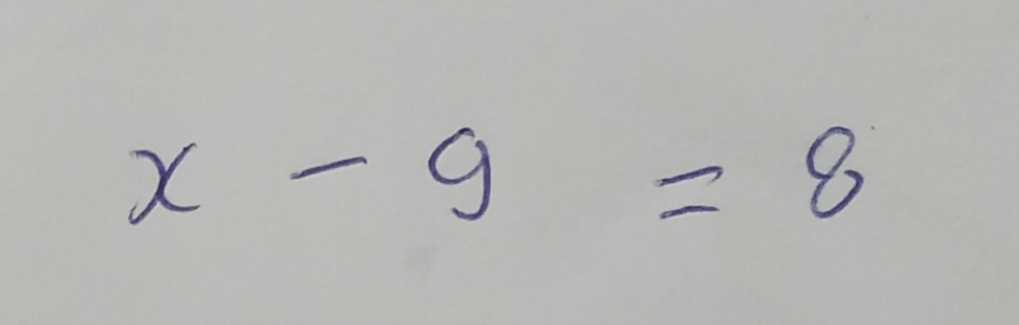 x - 9 = 8